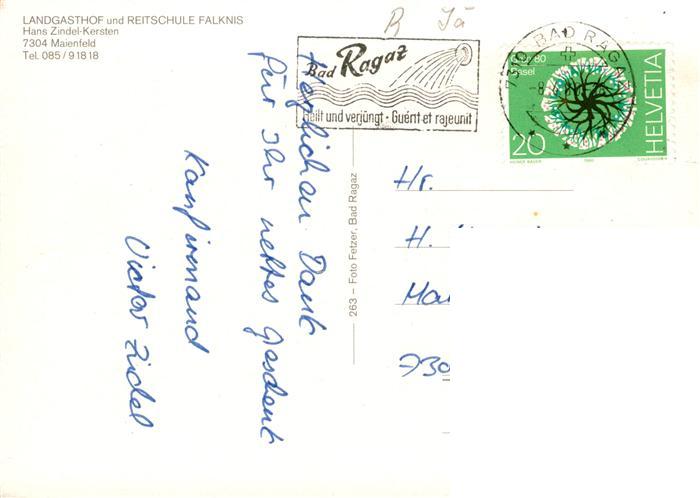 LANDGASTHOF und REITSCHULE FALKNIS
Hans Zindel-Kersten
7304 Maienfeld
Tel. 085/91818
R Jä
Bad Ragaz
Heilt und verjüngt · Guérit et rajeunit
7310 BAD RAGAZ
80
Basel
20
HELVETIA
1980
COURVOISIER
Herzlichen Dank
für Ihr nettes Geschenk
Konfirmand
Victor Zindel
263 – Foto Fetzer, Bad Ragaz
Hr.
H.
Mai
730